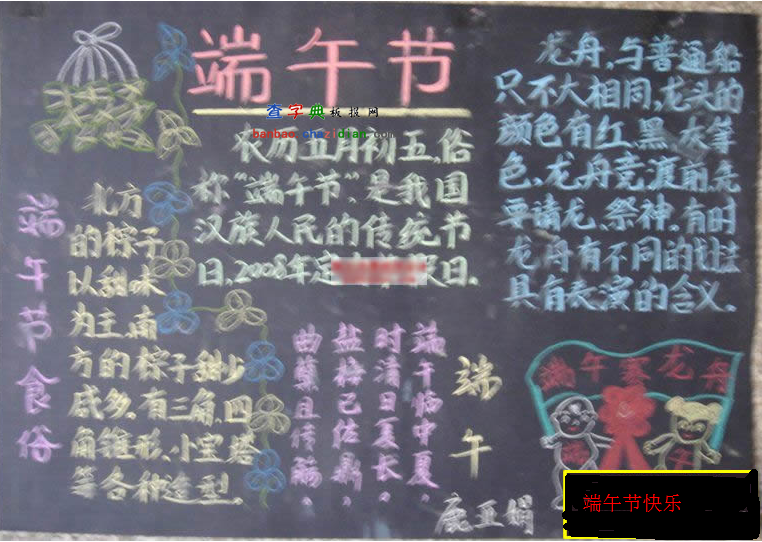 端午节
查字典板报网
banbao.chazidian.com
农历五月初五,俗
称“端午节”,是我国
汉族人民的传统节
日,2008年定日.
龙舟,与普通船
只不大相同,龙头的
颜色有红、黑、灰等
色,龙舟竞渡前,先
要请龙、祭神。有时
龙舟有不同的划法
具有表演的含义。
端午节食俗
北方
的粽子
以甜味
为主,南
方的粽子甜少
咸多,有三角、四
角锥形、小宝塔
等各种造型.
端午
端午临中夏,
时清日夏长。
盐梅已佐鼎,
曲糵且传觞。
鹿亚娟
端午赛龙舟
端午节快乐